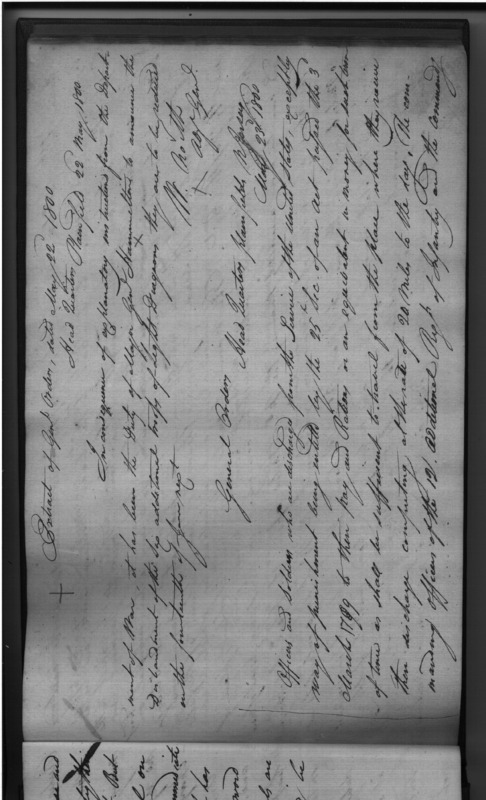 + Extract of Genl Orders, dated May 22 1800
Head Quarters Plainfield 22 May 1800
In consequence of explanatory instructions from the Depart-
ment of War, it has been the duty of Major Genl Hammelton to announce the
Disbandment of the two additional troops of Light Dragoons they are to be
on the fifteenth of June next
W. North
+ Adjt Genl.
General Orders Head Quarters Plainfield N Jersey
May 23d 1800
Officers and Soldiers who are discharged from the Service of the United States, except by
way of punishment being entitled by the 25th Sec. of an act passed the 3
March 1799 to their Pay and Rations or an equivalent in money for such time
of time as shall be sufficient to travel from the place where they receive
their discharge computing at the rate of 20 Miles to the day, The com-
manding officers of the 12 additional Regts of Infantry and the Commandg